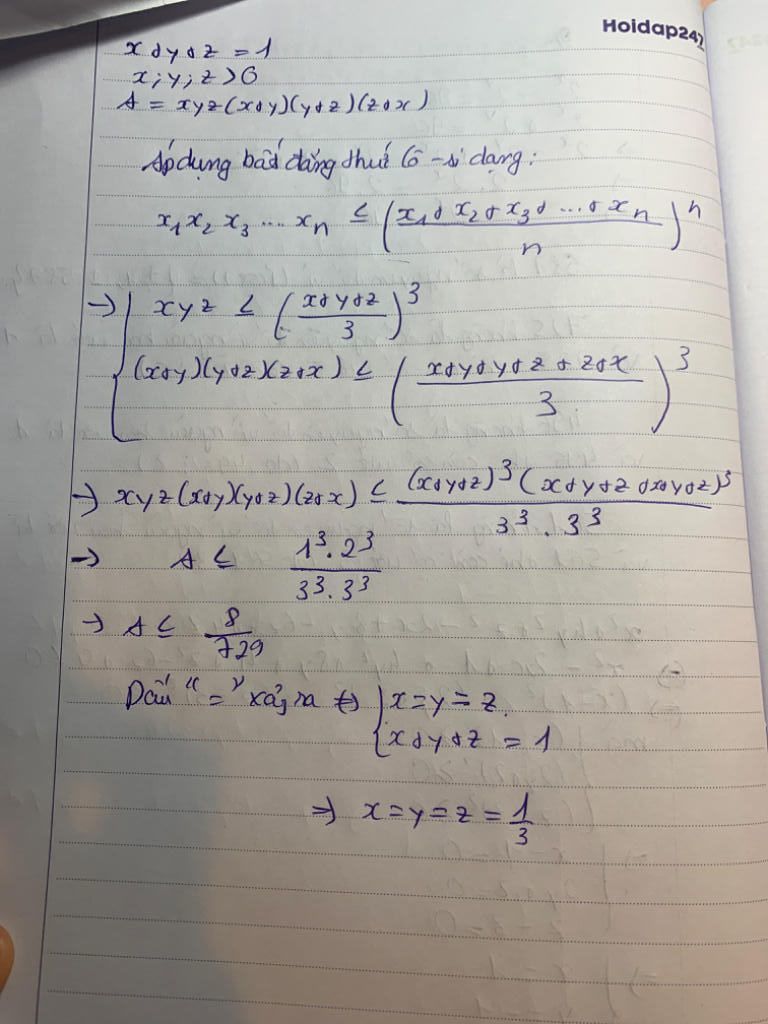 Hoidap247
x+y+z = 1
x; y; z > 0
A = xyz(x+y)(y+z)(z+x)
Áp dụng bất đẳng thức Cô-si dạng:
x₁x₂x₃ .... xₙ ≤ ((x₁ + x₂ + x₃ + ... + xₙ)/n)ⁿ
→ { xyz ≤ ((x+y+z)/3)³
(x+y)(y+z)(z+x) ≤ ((x+y+y+z+z+x)/3)³
→ xyz(x+y)(y+z)(z+x) ≤ ((x+y+z)³(x+y+z+x+y+z)³)/(3³.3³)
→ A ≤ (1³.2³)/(3³.3³)
→ A ≤ 8/729
Dấu "=" xảy ra ⇔ { x=y=z.
x+y+z = 1
⇒ x=y=z=1/3